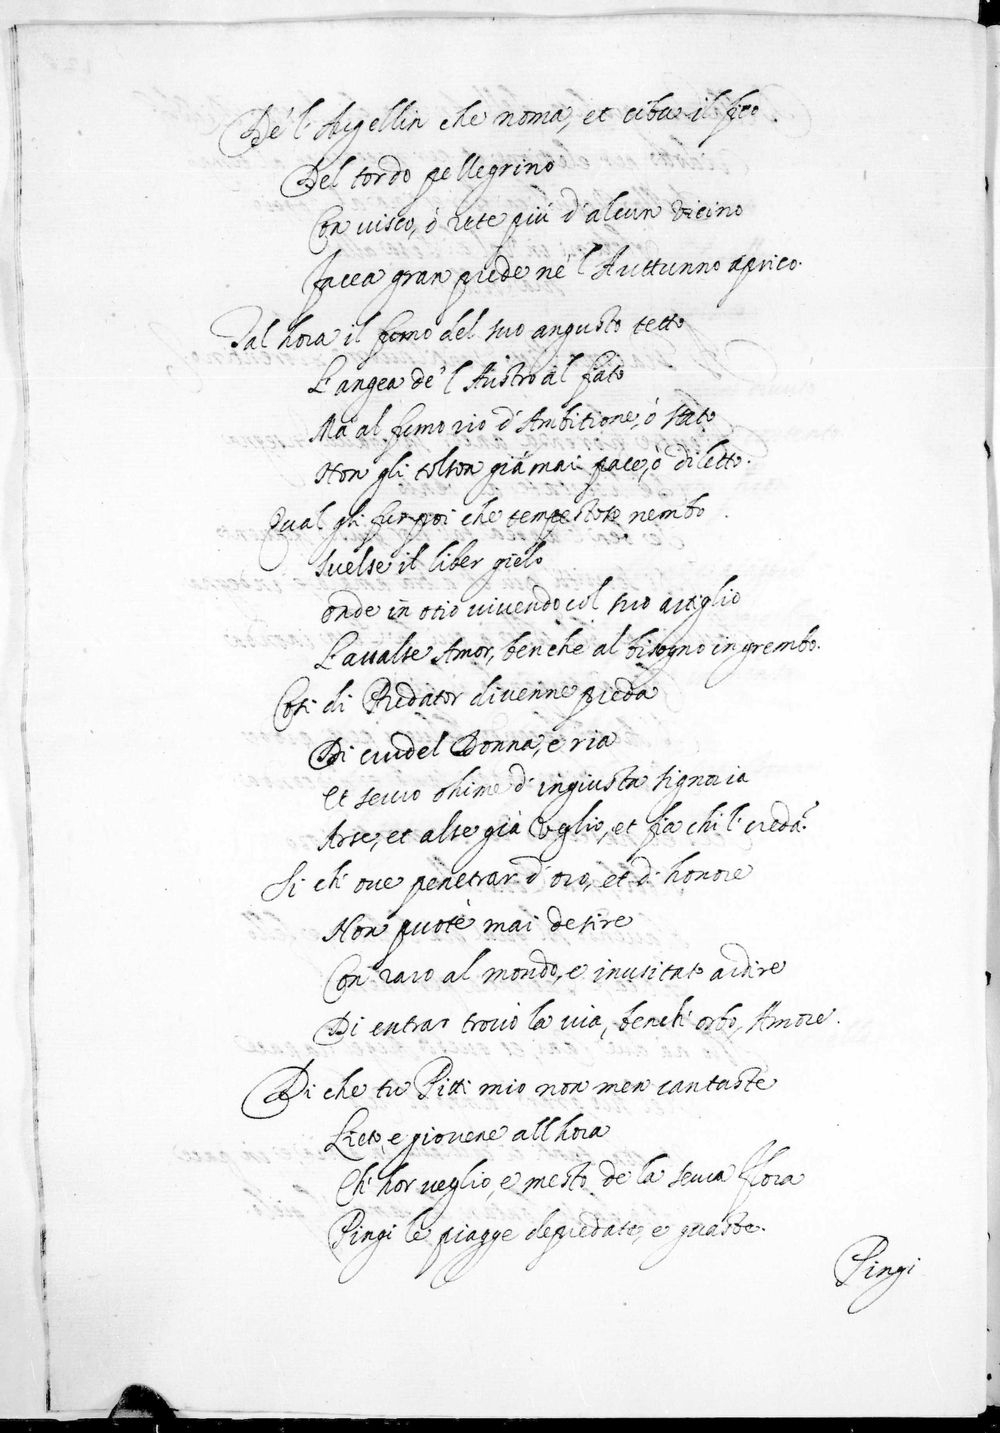 De l'Augellin che noma, et ciba il fico
Del tordo pellegrino
Con visco, ò rete più d'alcun vicino
Facea gran prede ne'l Auttunno aprico.
Tal hora il fumo del suo angusto tetto
L'angea de'l Austro al fiato
Ma al fumo rio d'Ambitione, ò stato
Non gli tolson giamai pace, ò diletto.
Qual gli fur poi che tempestoso nembo
Svelse il liber gielo
onde in otio vivendo col suo artiglio
L'assalse Amor, benche al bisogno in grembo.
Cosi di Predator divenne preda
Di crudel Donna, e ria
et servo ohime d'ingiusta signoria
Arse, et alse già veglio, et fia chi l' creda?
Si ch' ove penetrar d'oro, et di honore
Non puotè mai desire
Con raro al mondo, e inusitato ardire
Di entrar trovò la via, bench' orbo, Amore.
Di che tu Pitti mio non men cantaste
Lieto, e giovene all hora
Ch' hor veglio, e mesto de la serva Flora
Pingi le piagge depredate, e guaste.
Pingi